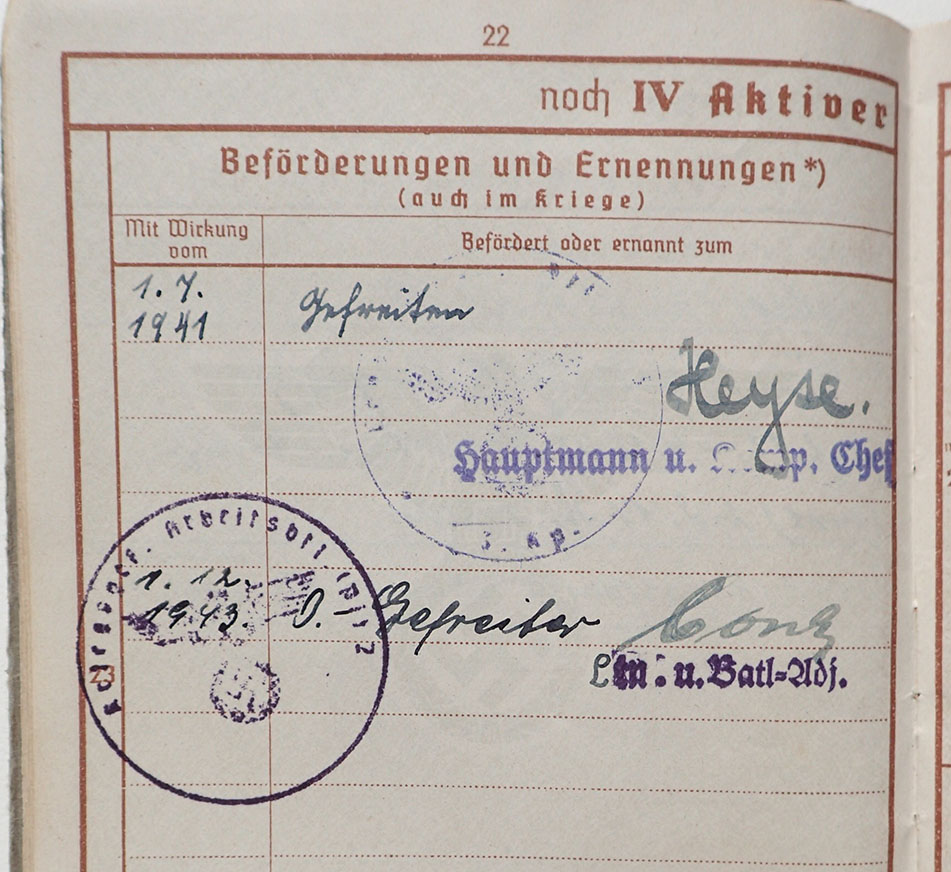 22
noch IV Aktiver
Beförderungen und Ernennungen*)
(auch im Kriege)
Mit Wirkung
vom
Befördert oder ernannt zum
1. 7.
1941
Gefreiten
Heyse.
Hauptmann u. Chef
3. Kp.
Arbeitsbtl.
1. 12.
1943.
O.- Gefreiter
23
Ltn. u. Batl=Adj.